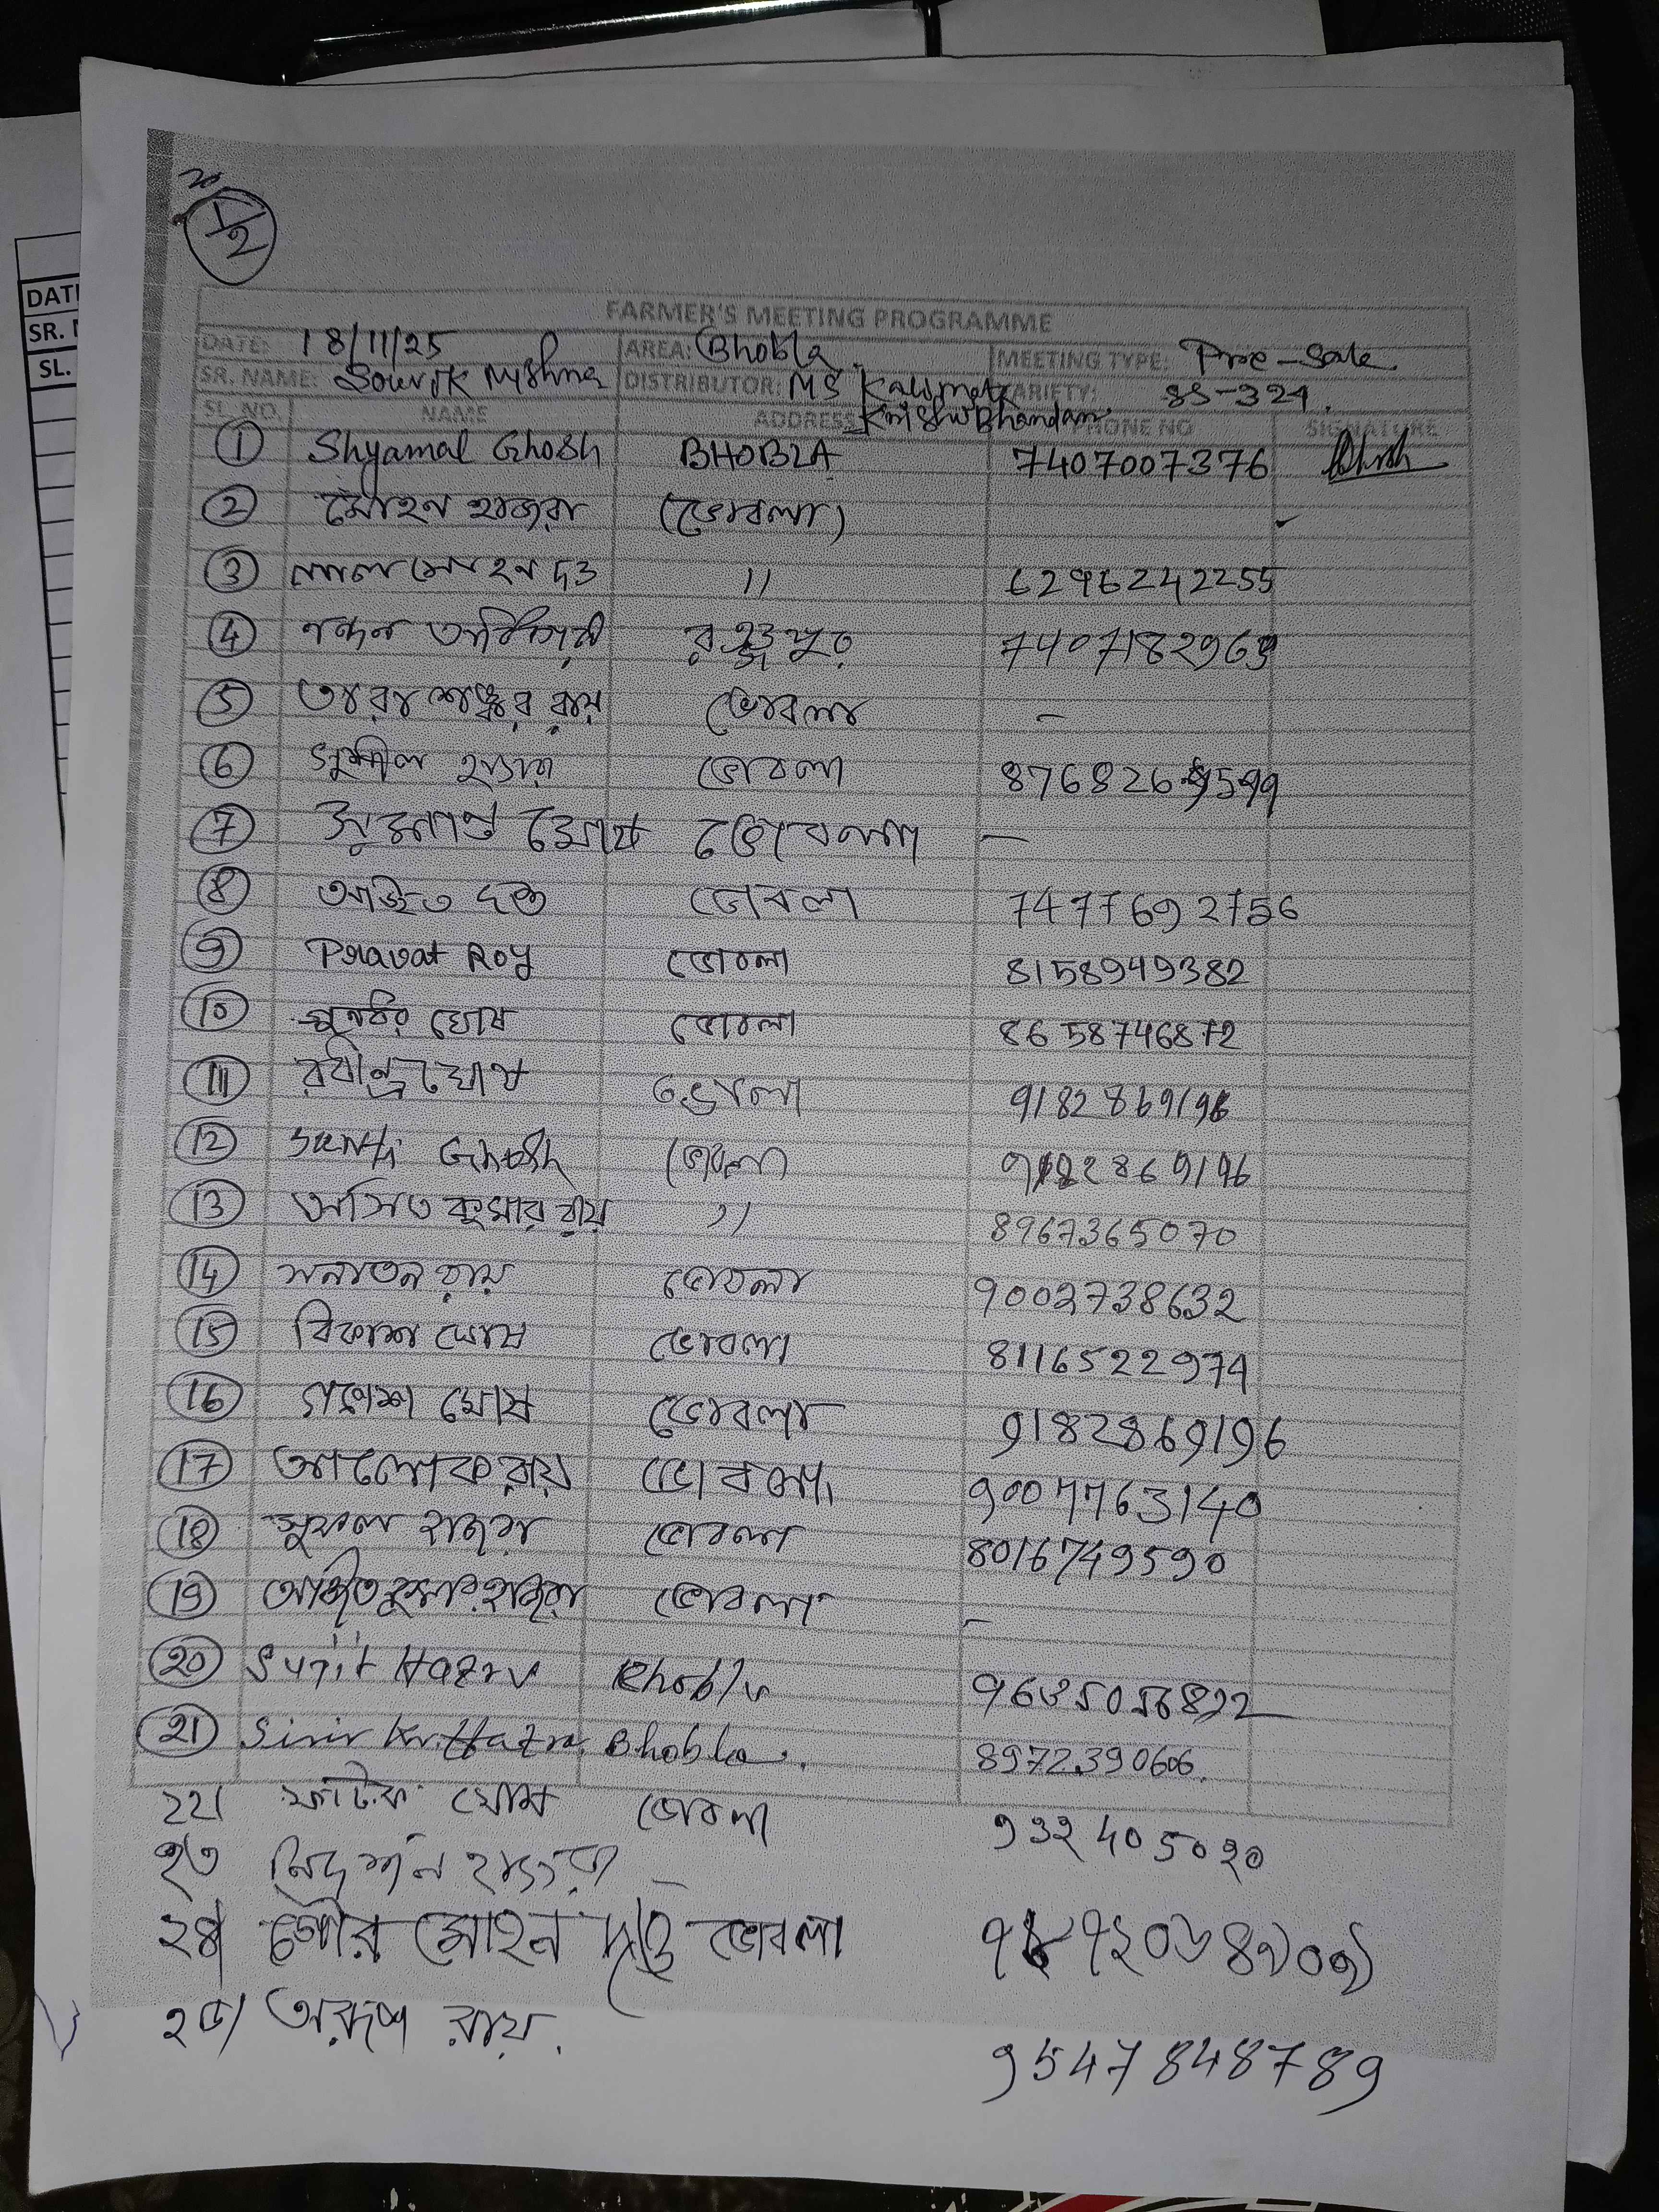 1/2
DATE
SR. N
SL.
FARMER'S MEETING PROGRAMME
DATE: 18/11/25 AREA: Bhobla MEETING TYPE: Pre-Sale
SR. NAME: Sourik Mishra DISTRIBUTOR: MS Kalimata Krishi Bhandar VARIETY: SS-324
SL. NO. NAME ADDRESS PHONE NO SIGNATURE
1 Shyamal Ghosh BHOBLA 7407007376
2 মোহন হাজরা (ভোবলা)
3 লালমোহন দত্ত " 6296242255
4 7407182969
5 তারাশঙ্কর রায় ভোবলা -
6 সুশীল হাজরা ভোবলা
7 ঘোষ ভোবলা -
8 অজিত দত্ত ভোবলা 7477692756
9 Pravat Roy ভোবলা 8158949382
10 ঘোষ ভোবলা 8658746872
11 রবীন্দ্র ঘোষ ভোবলা 9182869196
12 Ghosh ভোবলা 9182869196
13 অসিত কুমার রায় " 8967365070
14 সনাতন রায় ভোবলা 9002738632
15 বিকাশ ঘোষ ভোবলা 8116522974
16 গনেশ ঘোষ ভোবলা 9182869196
17 আলোক রায় ভোবলা 9007763140
18 সুফল হাজরা ভোবলা 8016749590
19 অজিত কুমার হাজরা ভোবলা -
20 Sujit Hazra Bhobla
21 Sisir Kr. Hazra. Bhobla. 8972390606.
২২। ফটিক ঘোষ ভোবলা 932405020
২৩ নিদর্শন হাজরা -
২৪। গৌর মোহন দত্ত ভোবলা
২৫। অরূপ রায়. 9547848789